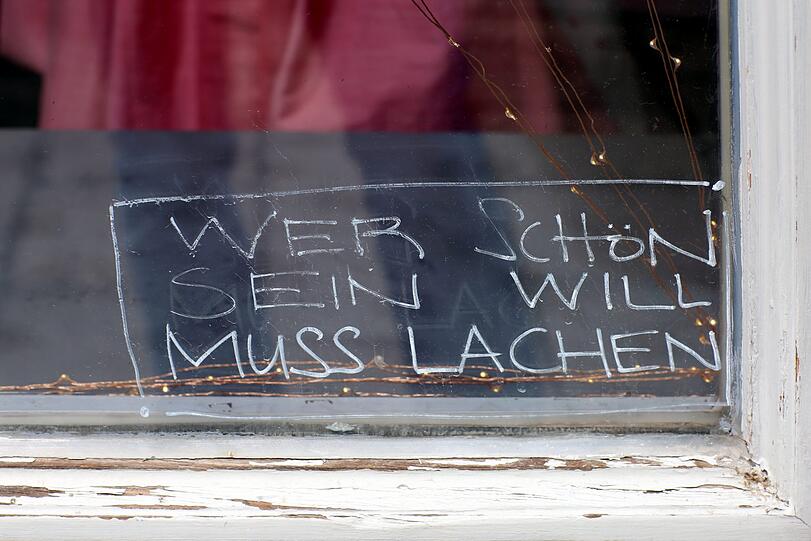 WER SCHÖN
SEIN WILL
MUSS LACHEN